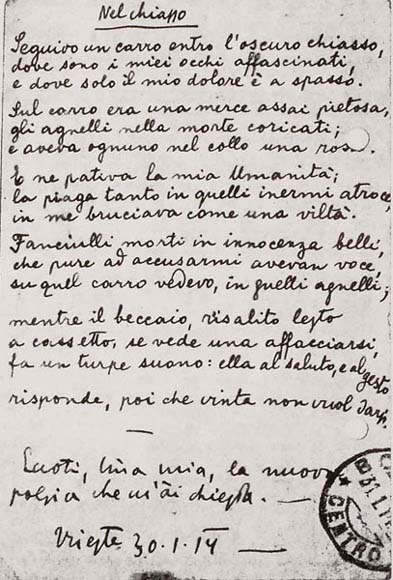 Nel chiasso
Seguivo un carro entro l'oscuro chiasso,
dove sono i miei occhi affascinati,
e dove solo il mio dolore è a spasso.
Sul carro era una merce assai pietosa,
gli agnelli nella morte coricati;
e aveva ognuno nel collo una rosa.
E ne pativa la mia Umanità;
la piaga tanto in quelli inermi atroce,
in me bruciava come una viltà.
Fanciulli morti in innocenza belli,
che pure ad accusarmi avevan voce,
su quel carro vedevo, in quelli agnelli;
mentre il beccaio, risalito lesto
a cassetto, se vede una affacciarsi,
fa un turpe suono: ella al saluto, e al gesto
risponde, poi che vinta non vuol darsi.
Eccoti, Lina mia, la nuova
poesia che m'ài chiesta.
Trieste 30.1.14
CENTRO